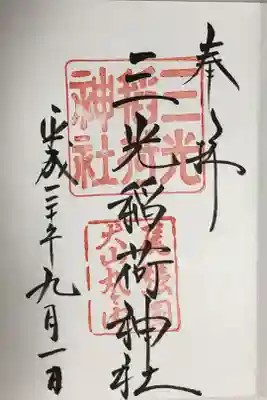 奉拝
三光稲荷神社
平成三十年九月一日
三光
稲荷
神社